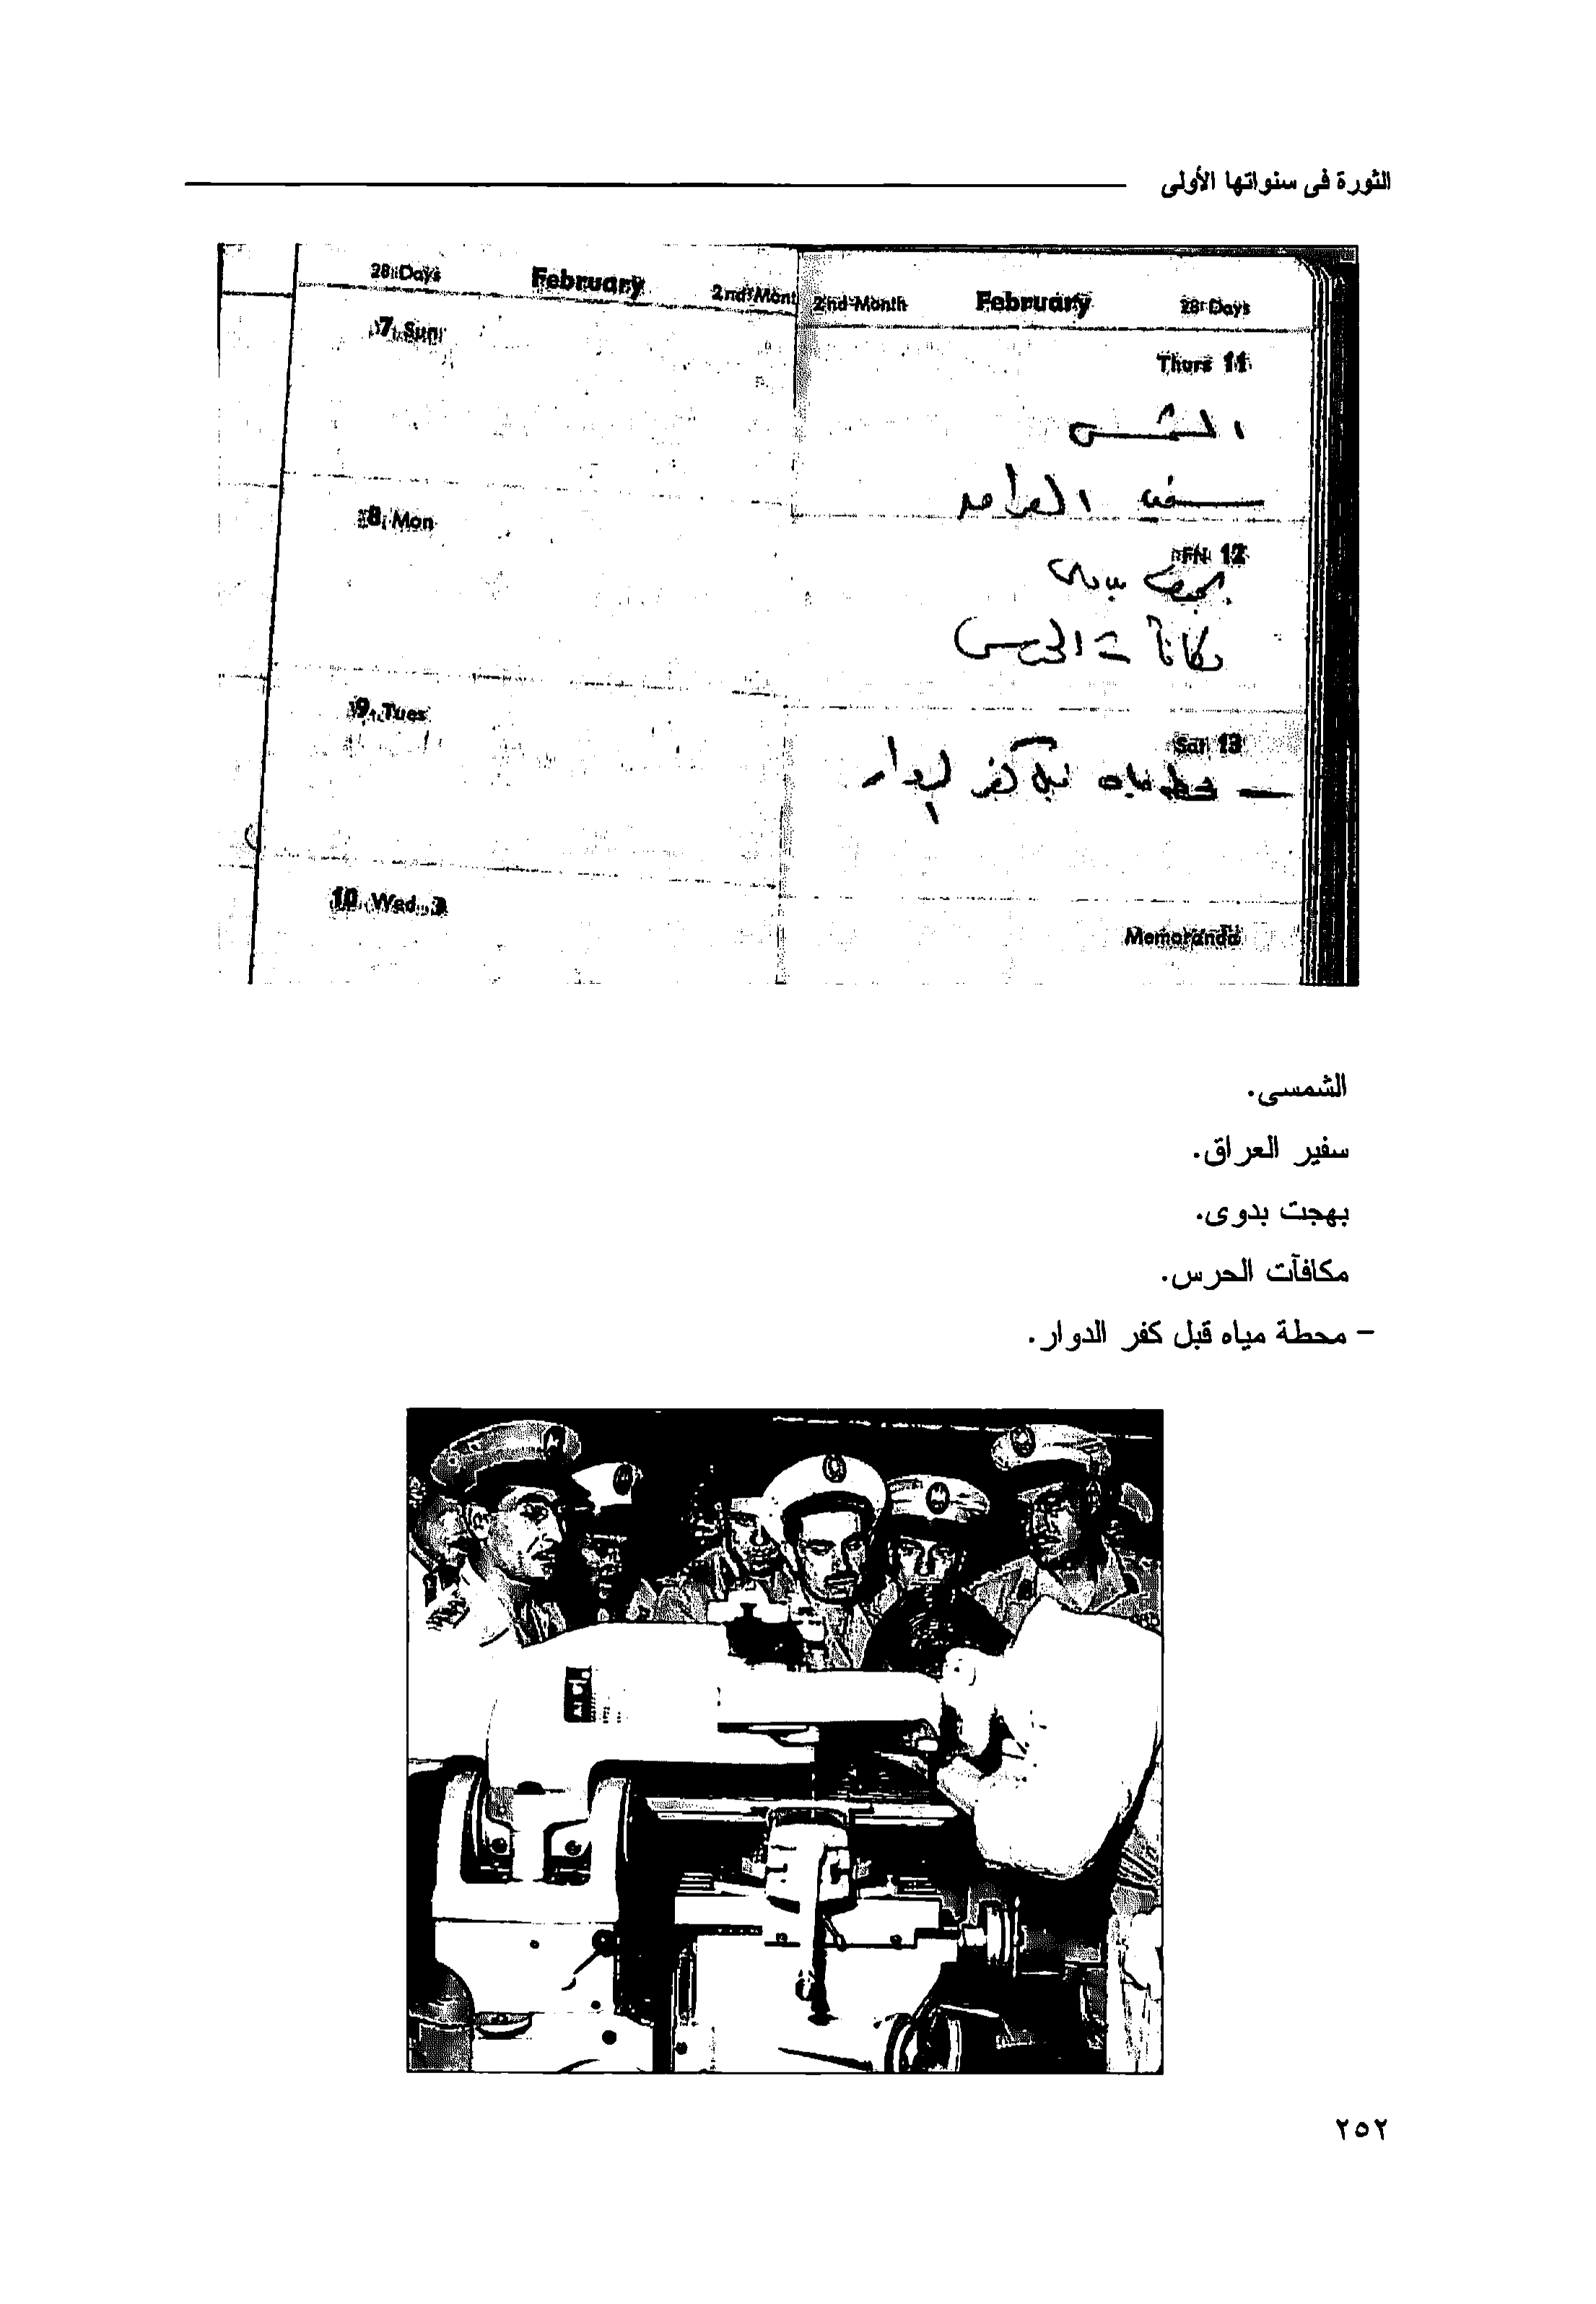 الثورة فى سنواتها الأولى
28 Days February 2nd Mont
7 Sun
8 Mon
9 Tues
10 Wed
2nd Month February 28 Days
Thurs 11
الشمسى
سفير العراق
Fri 12
بهجت بدوى
مكافآت الحرس
Sat 13
— محطة مياه قبل كفر الدوار
Memoranda
الشمسى.
سفير العراق.
بهجت بدوى.
مكافآت الحرس.
– محطة مياه قبل كفر الدوار.
٢٥٢